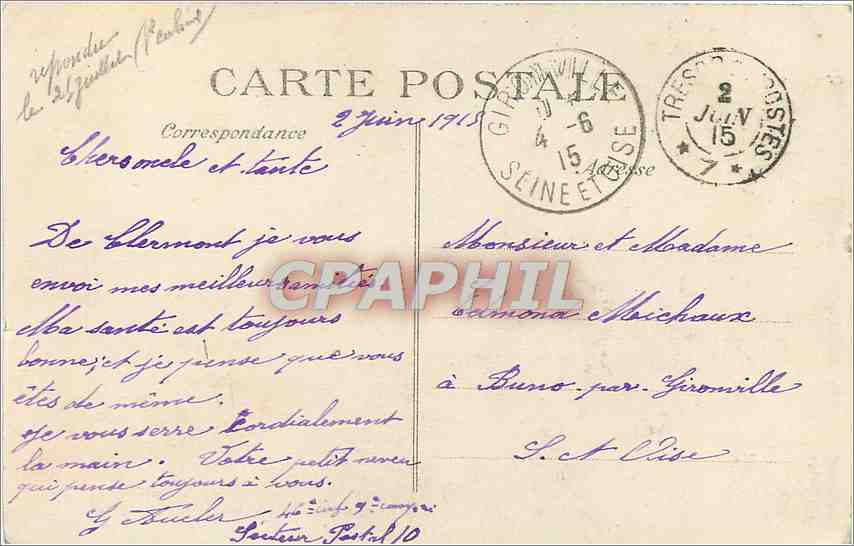 répondu
le 25 juillet
CARTE POSTALE
Correspondance
2 Juin 1915
GIRONVILLE
4 -6
15
SEINE ET OISE
TRESOR ET POSTES
2
JUIN
15
* 7 *
Adresse
Chers oncle et tante
De Clermont je vous
envoi mes meilleurs amitiés.
Ma santé est toujours
bonne, et je pense que vous
êtes de même.
Je vous serre cordialement
la main. Votre petit neveu
qui pense toujours à vous.
G
46e inf 9e
Secteur Postal 10
Monsieur et Madame
Edmond Michaux
à Buno-par-Gironville
S. et Oise
CPAPHIL